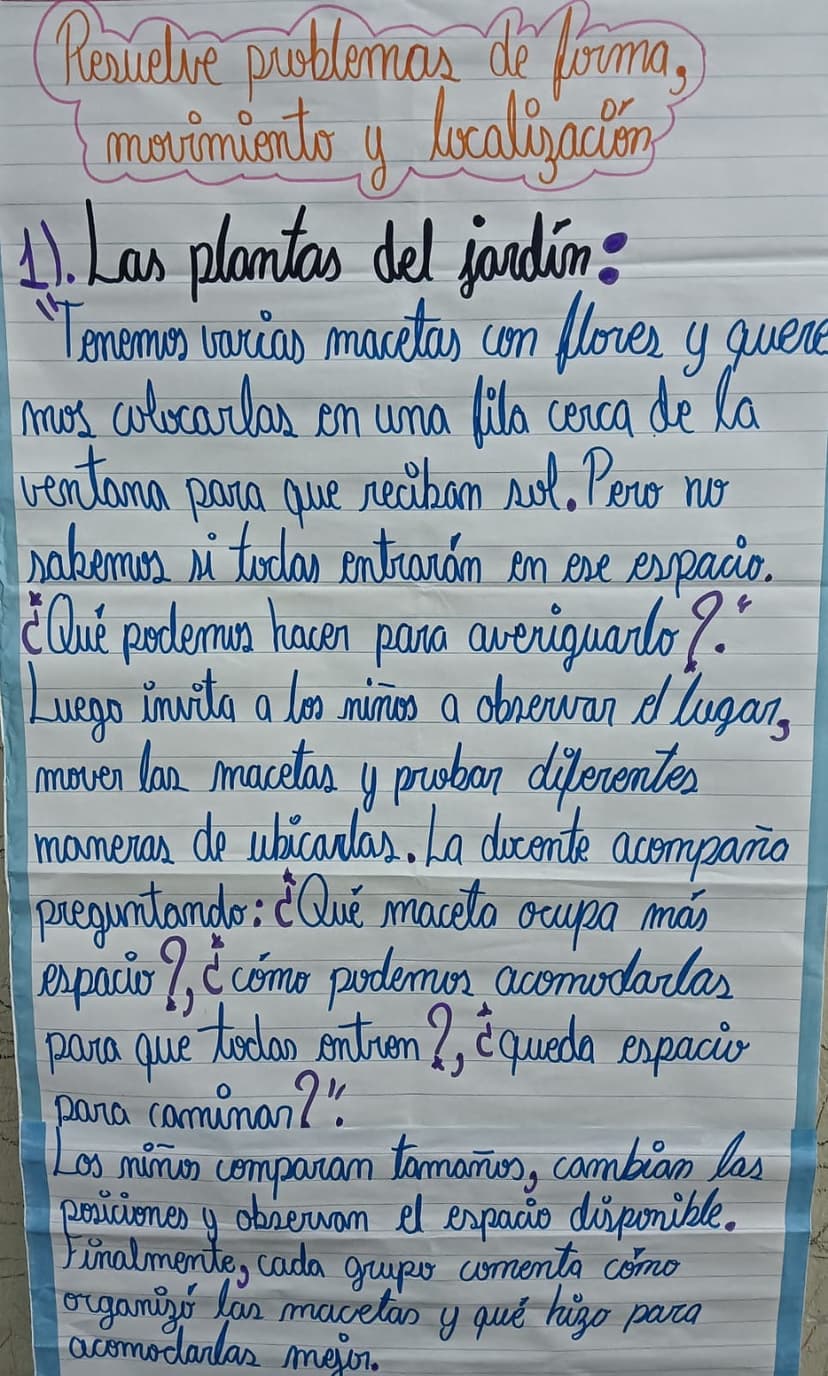 Resuelve problemas de forma,
movimiento y localización
1). Las plantas del jardín:
"Tenemos varias macetas con flores y quere
mos colocarlas en una fila cerca de la
ventana para que reciban sol. Pero no
sabemos si todas entrarán en ese espacio.
¿Qué podemos hacer para averiguarlo?."
Luego invita a los niños a observar el lugar,
mover las macetas y probar diferentes
maneras de ubicarlas. La docente acompaña
preguntando: ¿Qué maceta ocupa más
espacio?, ¿cómo podemos acomodarlas
para que todas entren?, ¿queda espacio
para caminar?".
Los niños comparan tamaños, cambian las
posiciones y observan el espacio disponible.
Finalmente, cada grupo comenta cómo
organizó las macetas y qué hizo para
acomodarlas mejor.